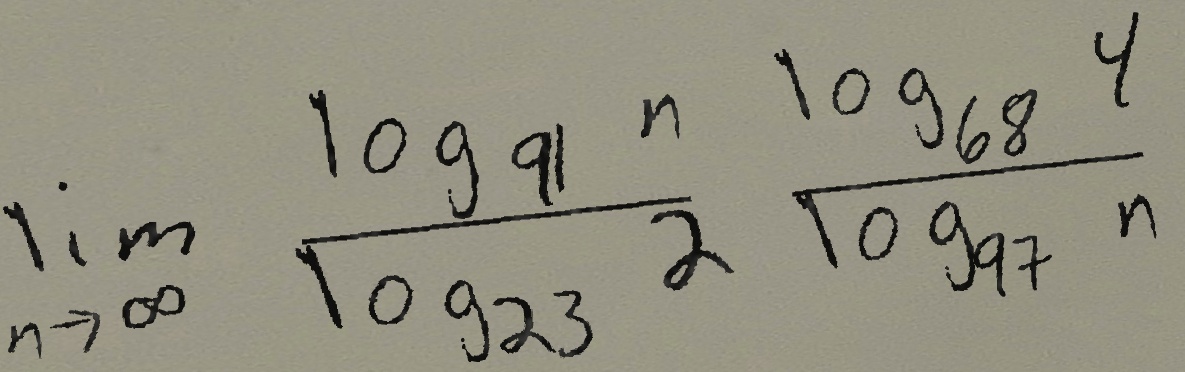 lim n→∞ \frac{log_{91} n}{log_{23} 2} \frac{log_{68} 4}{log_{97} n}